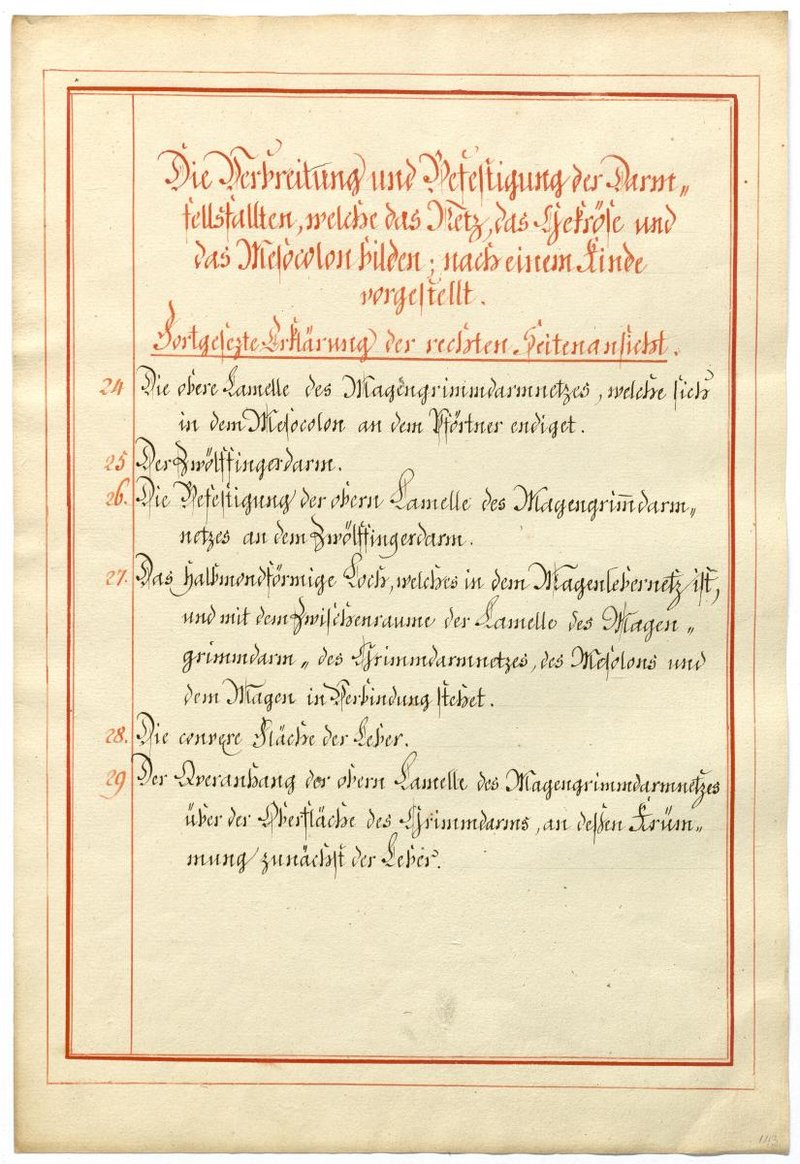 Die Verbreitung und Befestigung der Darm„
fellsfallten, welche das Netz, das Gekröse und
das Mesocolon bilden; nach einem Kinde
vorgestellt.
Fortgesezte Erklärung der rechten Seitenansicht.
24 Die obere Lamelle des Magengrimmdarmnetzes, welche sich
in dem Mesocolon an dem Pförtner endiget.
25 Der Zwölffingerdarm.
26. Die Befestigung der obern Lamelle des Magengrim̄darm„
netzes an dem Zwölffingerdarm.
27. Das halbmondförmige Loch, welches in dem Magenlebernetz ist,
und mit dem Zwischenraume der Lamelle des Magen„
grimmdarm„ des Grimmdarmnetzes, des Mesolons und
dem Magen in Verbindung stehet.
28. Die convexe Fläche der Leber.
29 Der Queranhang der obern Lamelle des Magengrimmdarmnetzes
über der Oberfläche des Grimmdarms, an deßen Krüm„
mung zunächst der Leber.